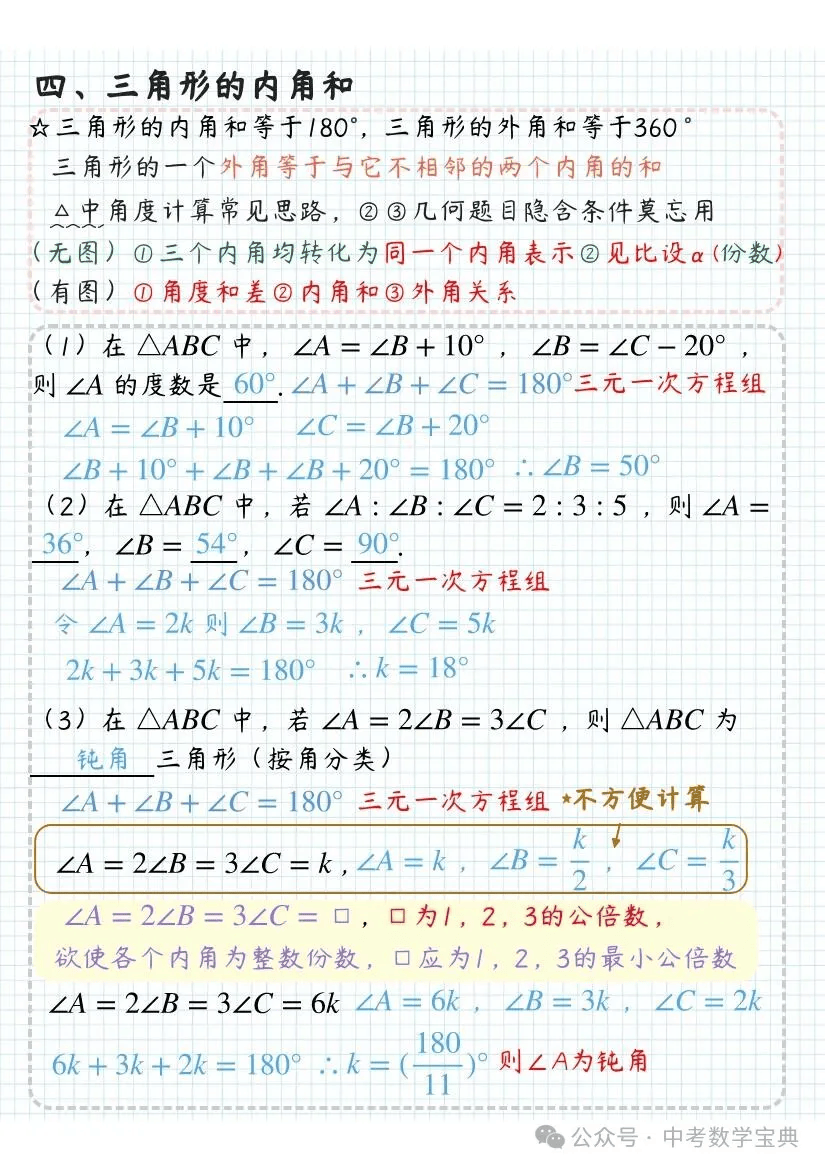 四、三角形的内角和
☆三角形的内角和等于180°，三角形的外角和等于360°
三角形的一个外角等于与它不相邻的两个内角的和
△中角度计算常见思路，②③几何题目隐含条件莫忘用
(无图) ①三个内角均转化为同一个内角表示②见比设α(份数)
(有图) ①角度和差②内角和③外角关系
(1) 在 △ABC 中， ∠A = ∠B + 10° ， ∠B = ∠C − 20° ，
则 ∠A 的度数是 60°. ∠A + ∠B + ∠C = 180° 三元一次方程组
∠A = ∠B + 10° ∠C = ∠B + 20°
∠B + 10° + ∠B + ∠B + 20° = 180° ∴ ∠B = 50°
(2) 在 △ABC 中，若 ∠A : ∠B : ∠C = 2 : 3 : 5 ，则 ∠A =
36°， ∠B = 54°， ∠C = 90°.
∠A + ∠B + ∠C = 180° 三元一次方程组
令 ∠A = 2k 则 ∠B = 3k ， ∠C = 5k
2k + 3k + 5k = 180° ∴ k = 18°
(3) 在 △ABC 中，若 ∠A = 2∠B = 3∠C ，则 △ABC 为
钝角 三角形（按角分类）
∠A + ∠B + ∠C = 180° 三元一次方程组 ★不方便计算
∠A = 2∠B = 3∠C = k , ∠A = k ， ∠B = k/2 ， ∠C = k/3
∠A = 2∠B = 3∠C = □ ，□为1，2，3的公倍数，
欲使各个内角为整数份数，□应为1，2，3的最小公倍数
∠A = 2∠B = 3∠C = 6k ∠A = 6k ， ∠B = 3k ， ∠C = 2k
6k + 3k + 2k = 180° ∴ k = (180/11)° 则∠A为钝角
公众号 · 中考数学宝典